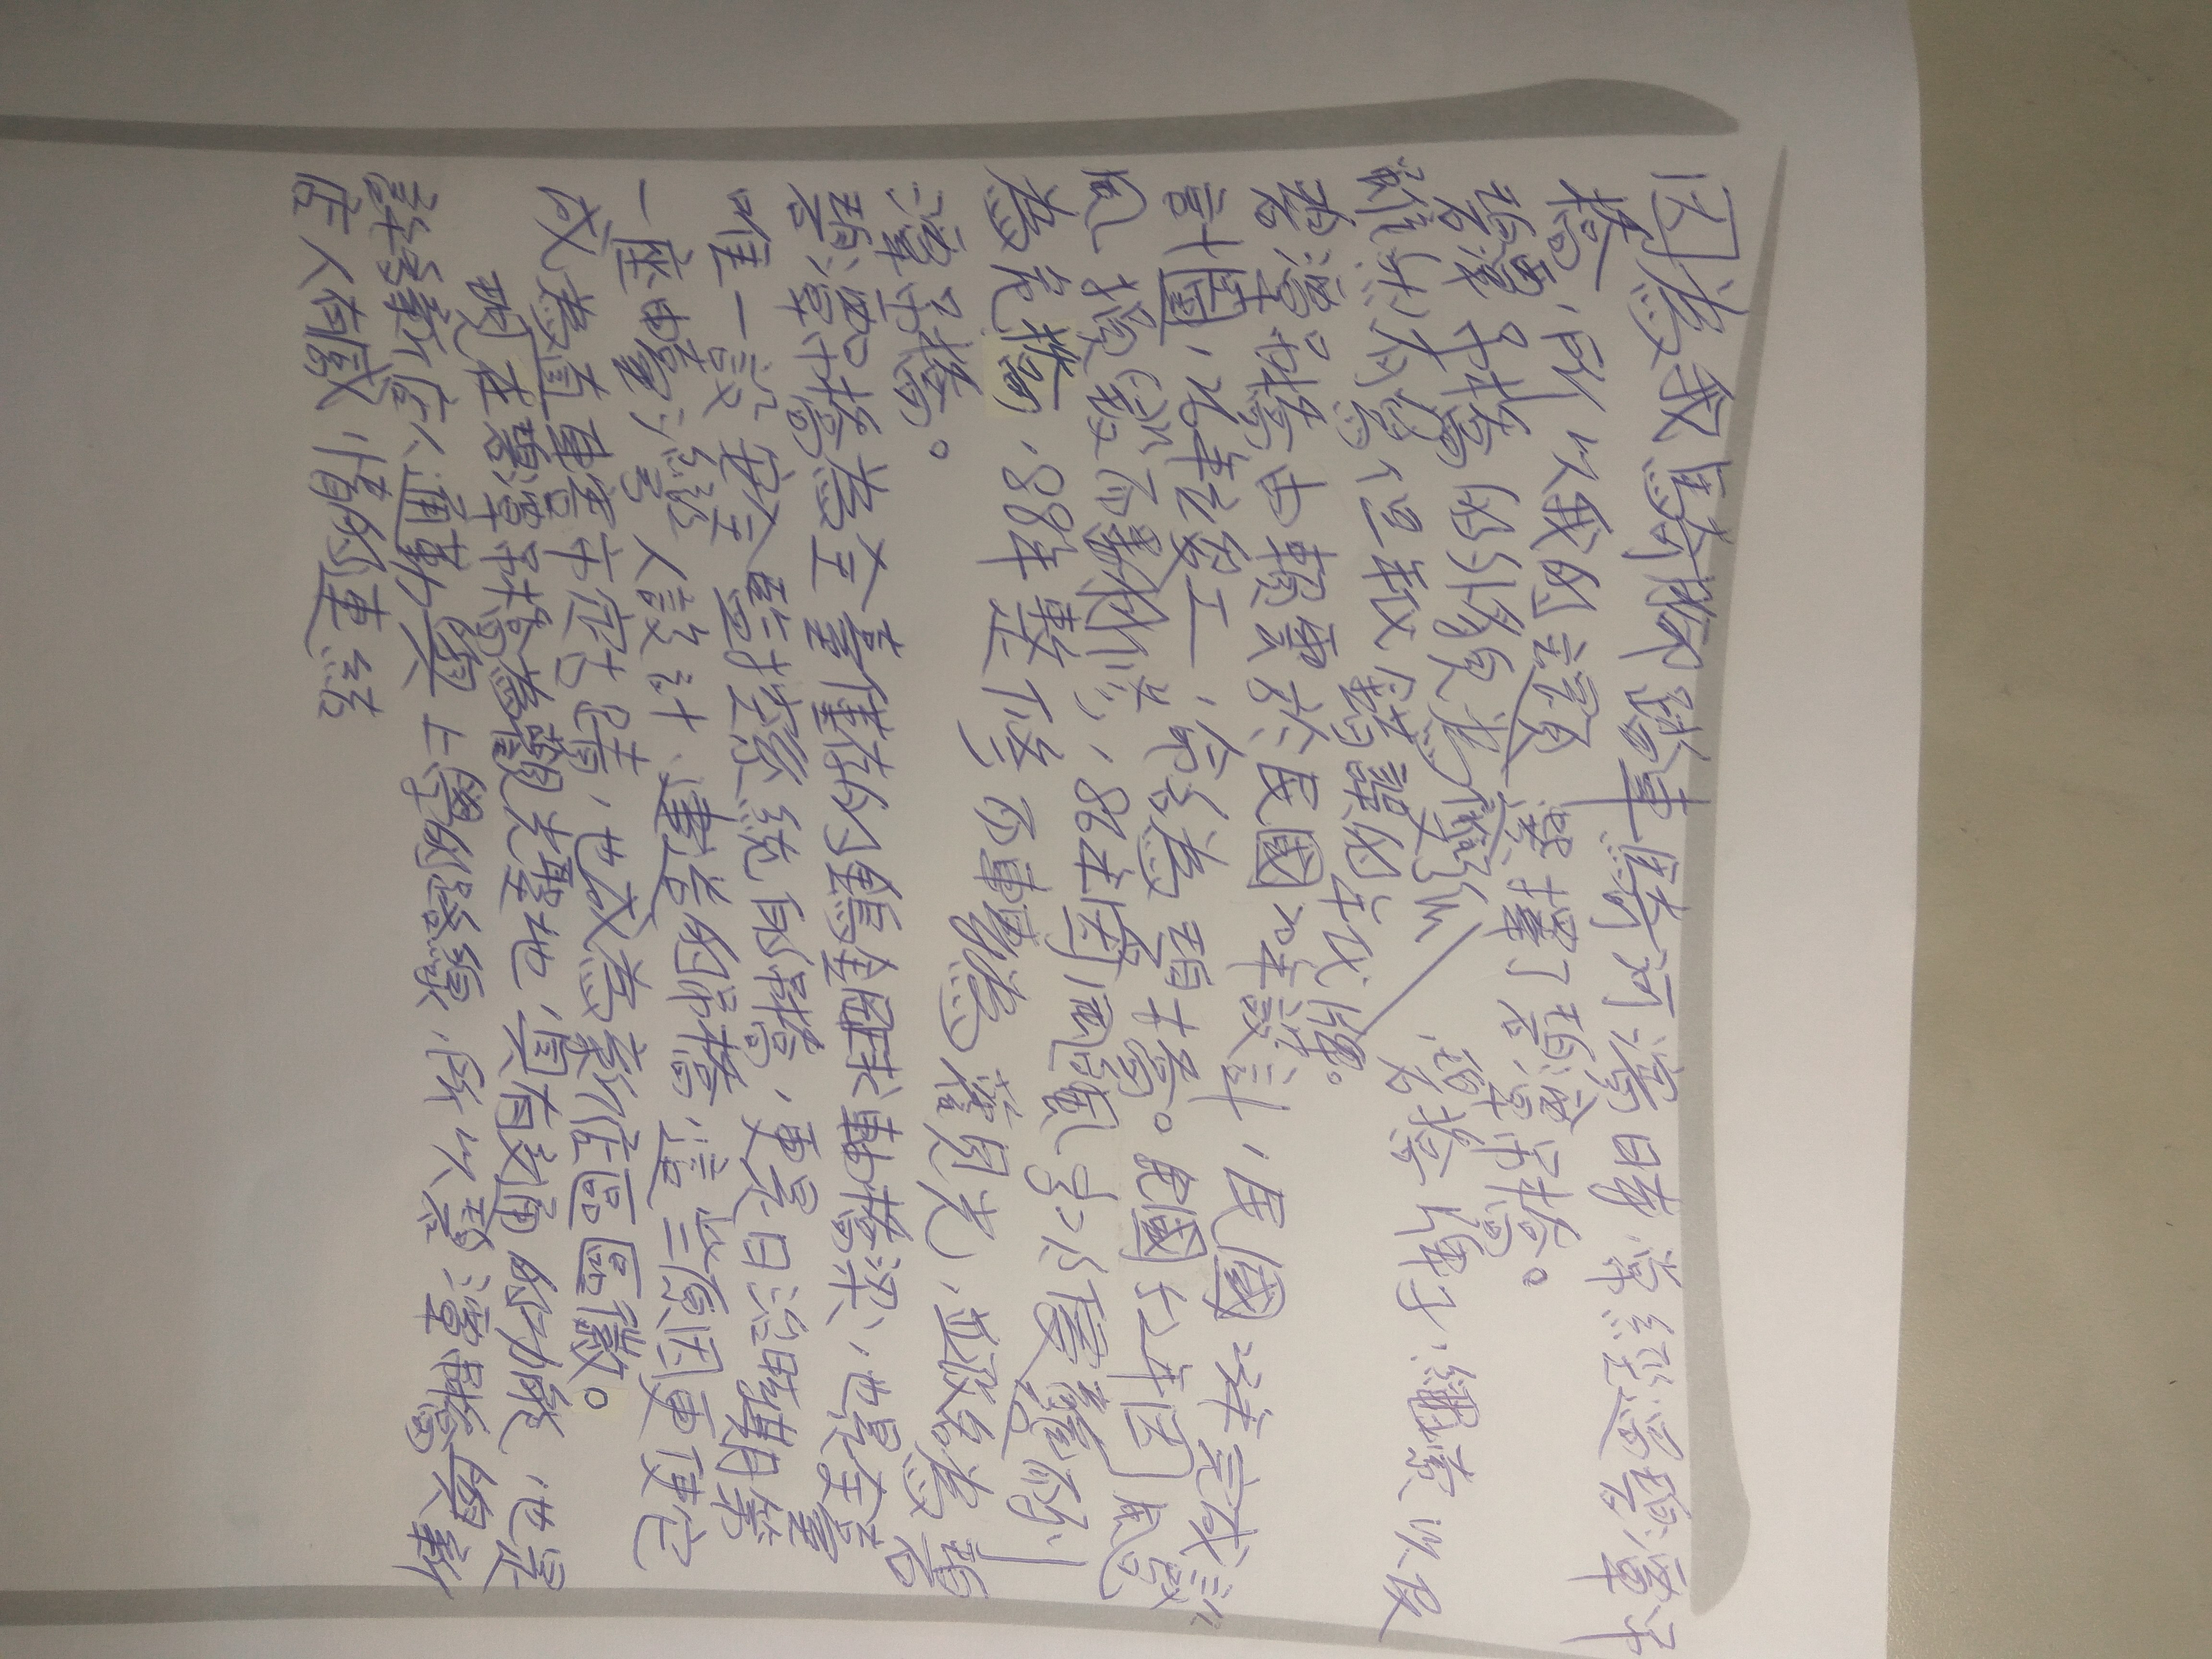 因為我騎腳踏車騎河濱時,常經過碧潭吊
橋,所以我的主題選擇了碧潭吊橋。
碧潭吊橋的外貌為雙弧、碧橋牌子,繩索以及
雖然有寫但年代錯誤的年代牌。
碧潭吊橋由賴雲於民國20年設計,民國23年完成設
計圖,26年竣工,命名為碧橋。民國52年因颱
風損毀而翻修,86年因颱風多次侵襲而列
為危橋,88年整修而轉為觀光,並改名為碧
潭吊橋。
碧潭吊橋為全臺僅存的鎢鋼球軸橋梁,也是全臺
唯一設安全監控系統的吊橋,更是日治時期第
一座由臺灣人設計、建造的吊橋,這些原因更使它
成為直轄市定古蹟,也成為新店區區徽。
現在碧潭吊橋為觀光聖地,具有交通的功能,也是
許多新店人通勤與上學的路線,所以碧潭吊橋與新
店人有感情的連結